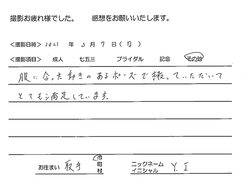 撮影お疲れ様でした。 感想をお願いいたします。
<撮影日時> 2021 年 3月 9日( )
<撮影項目> 成人 七五三 ブライダル 記念 その他
服に合った動きのあるポーズで撮っていただいて
とても満足しています。
お住まい 取手 市 町 村 ニックネーム イニシャル Y.I